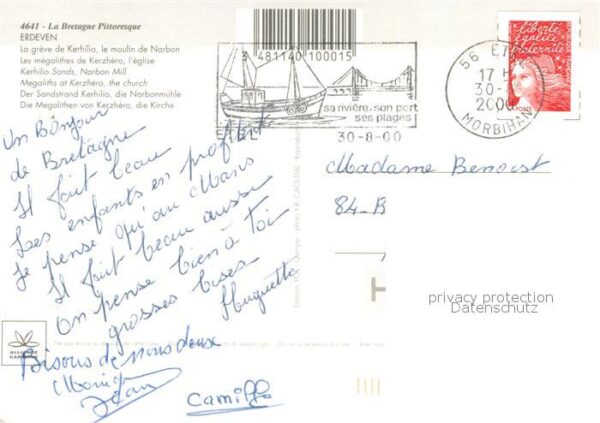 4641 - La Bretagne Pittoresque
ERDEVEN
La grève de Kerhilio, le moulin de Narbon
Les mégalithes de Kerzhéro, l'église
Kerhilio Sands, Narbon Mill
Megaliths at Kerzhéro, the church
Der Sandstrand Kerhilio, die Narbonmühle
Die Megalithen von Kerzhéro, die Kirche
3 481140 100015
ETEL
sa rivière, son port
ses plages
30-8-00
56 ETEL
17 H
30-
2000
MORBIHAN
liberté
égalité
fraternité
Un Bonjour
de Bretagne
Il fait beau
Les enfants en profitent
Je pense qu'au Mans
Il fait beau aussi
On pense bien à toi
grosses bises
Huguette
Bisous de nous deux
Monique
Jean
Camille
Madame Benoist
84-B
H
privacy protection
Datenschutz
ALLIANCE